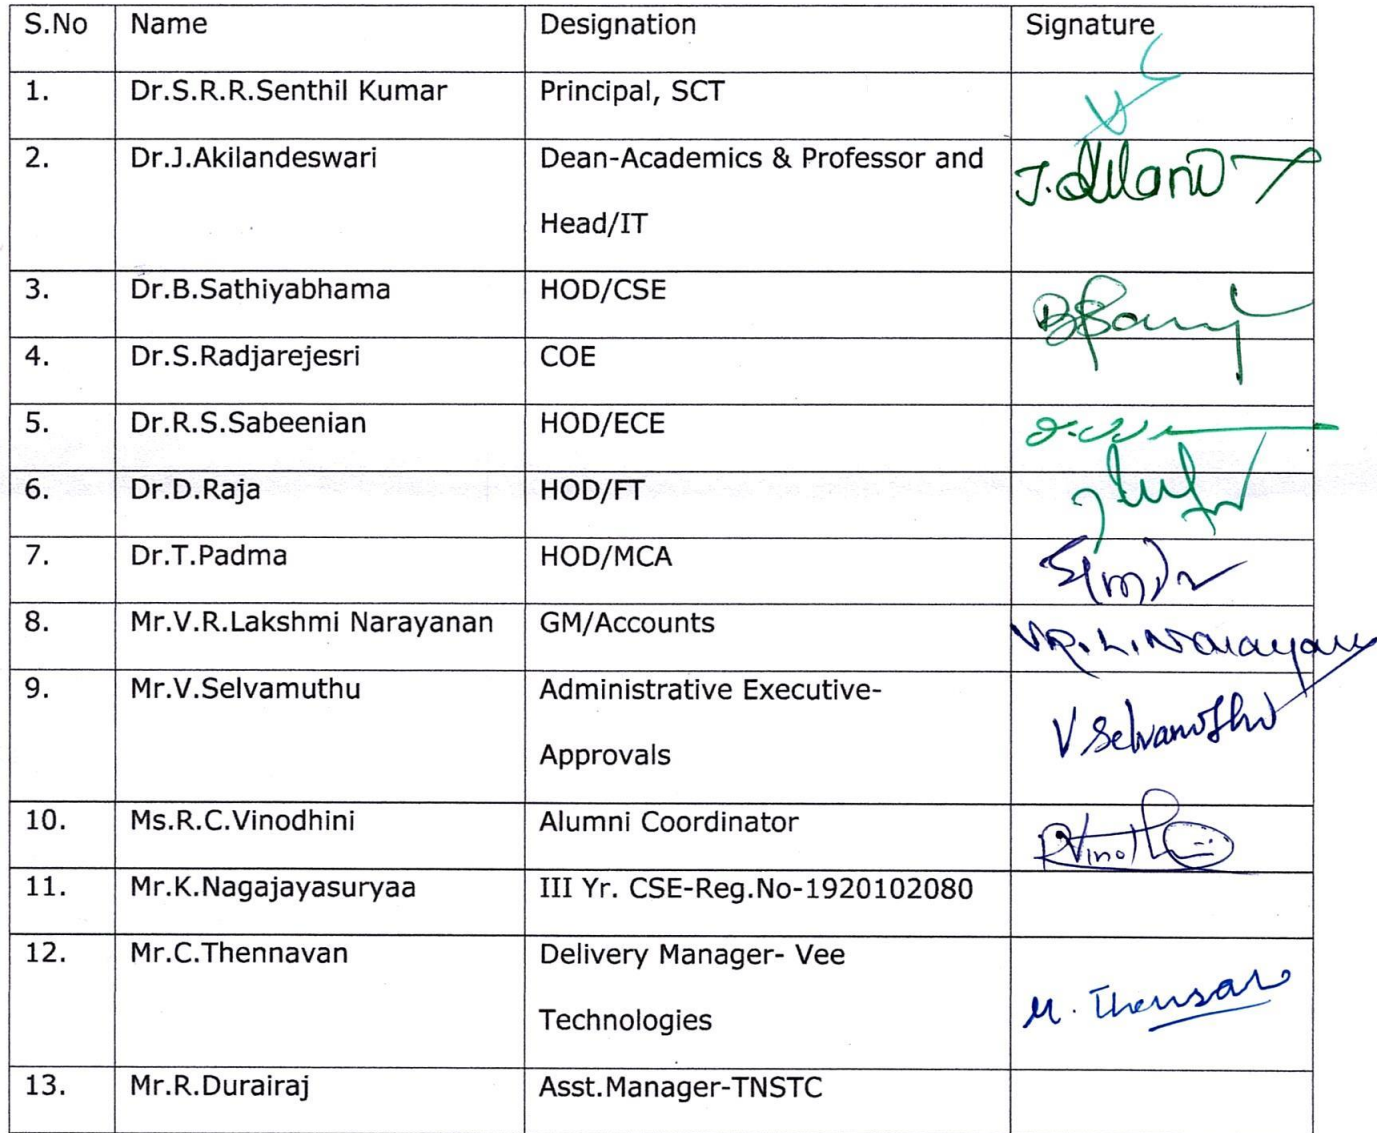 S.No Name Designation Signature
1. Dr.S.R.R.Senthil Kumar Principal, SCT
2. Dr.J.Akilandeswari Dean-Academics & Professor and
Head/IT
3. Dr.B.Sathiyabhama HOD/CSE
4. Dr.S.Radjarejesri COE
5. Dr.R.S.Sabeenian HOD/ECE
6. Dr.D.Raja HOD/FT
7. Dr.T.Padma HOD/MCA
8. Mr.V.R.Lakshmi Narayanan GM/Accounts
9. Mr.V.Selvamuthu Administrative Executive-
Approvals
10. Ms.R.C.Vinodhini Alumni Coordinator
11. Mr.K.Nagajayasuryaa III Yr. CSE-Reg.No-1920102080
12. Mr.C.Thennavan Delivery Manager- Vee
Technologies
13. Mr.R.Durairaj Asst.Manager-TNSTC